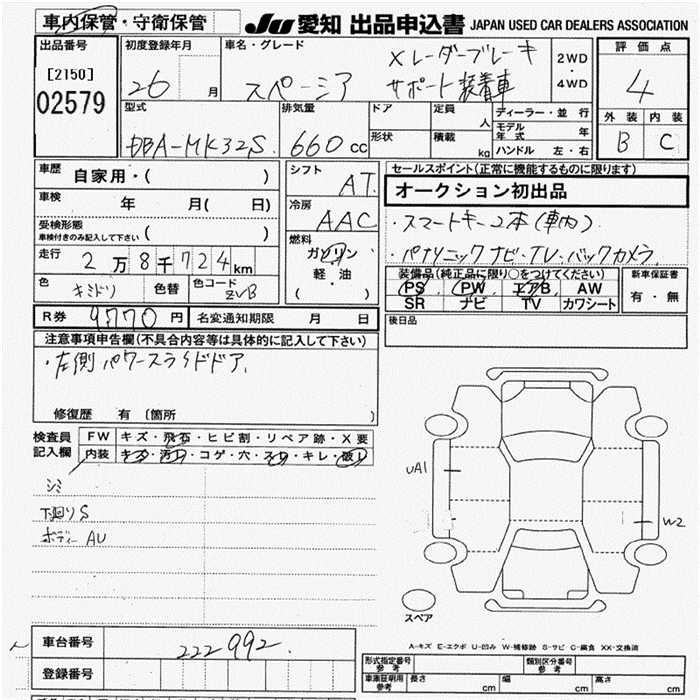 車内保管・守衛保管 JU 愛知 出品申込書 JAPAN USED CAR DEALERS ASSOCIATION
出品番号 初度登録年月 車名・グレード 評価点
[2150]
02579
26 月
スペーシア Xレーダーブレーキ
サポート装着車
2WD
・
4WD
4
型式 排気量 ドア 定員 ディーラー・並行 外装 内装
人 モデル年式 年
DBA-MK32S 660 cc 形状 積載 kg ハンドル 左・右 B C
車歴 自家用・( ) シフト AT セールスポイント(正常に機能するものに限ります)
オークション初出品
車検 年 月( 日) 冷房 AAC
・スマートキー2本(車内)
受検形態
車検付きのみ記入して下さい ( )
燃料 ガソリン
軽・油
( )
・パナソニックナビ・TV・バックカメラ
走行 2万8千724km
装備品(純正品に限り○をつけてください) 新車保証書
PS PW エアB AW 有・無
SR ナビ TV カワシート
色 キミドリ 色替 色コード ZVB
R券 9770円 名変通知期限 月 日 後日品
注意事項申告欄(不具合内容等は具体的に記入して下さい)
・左側パワースライドドア
修復歴 有 〔箇所 〕
検査員
記入欄
FW キズ・飛石・ヒビ割・リペア跡・X要
内装 キズ・汚れ・コゲ・穴・スリ・キレ・破レ
シミ
下廻りS
ボディーAU
UA1
W2
スペア
A-キズ E-エクボ U-凹み W-補修跡 S-サビ C-腐食 XX-交換済
車台番号 222992
登録番号
形式指定番号
参考
類別区分番号
参考
車庫証明用
参考
長さ cm 幅 cm 高さ cm